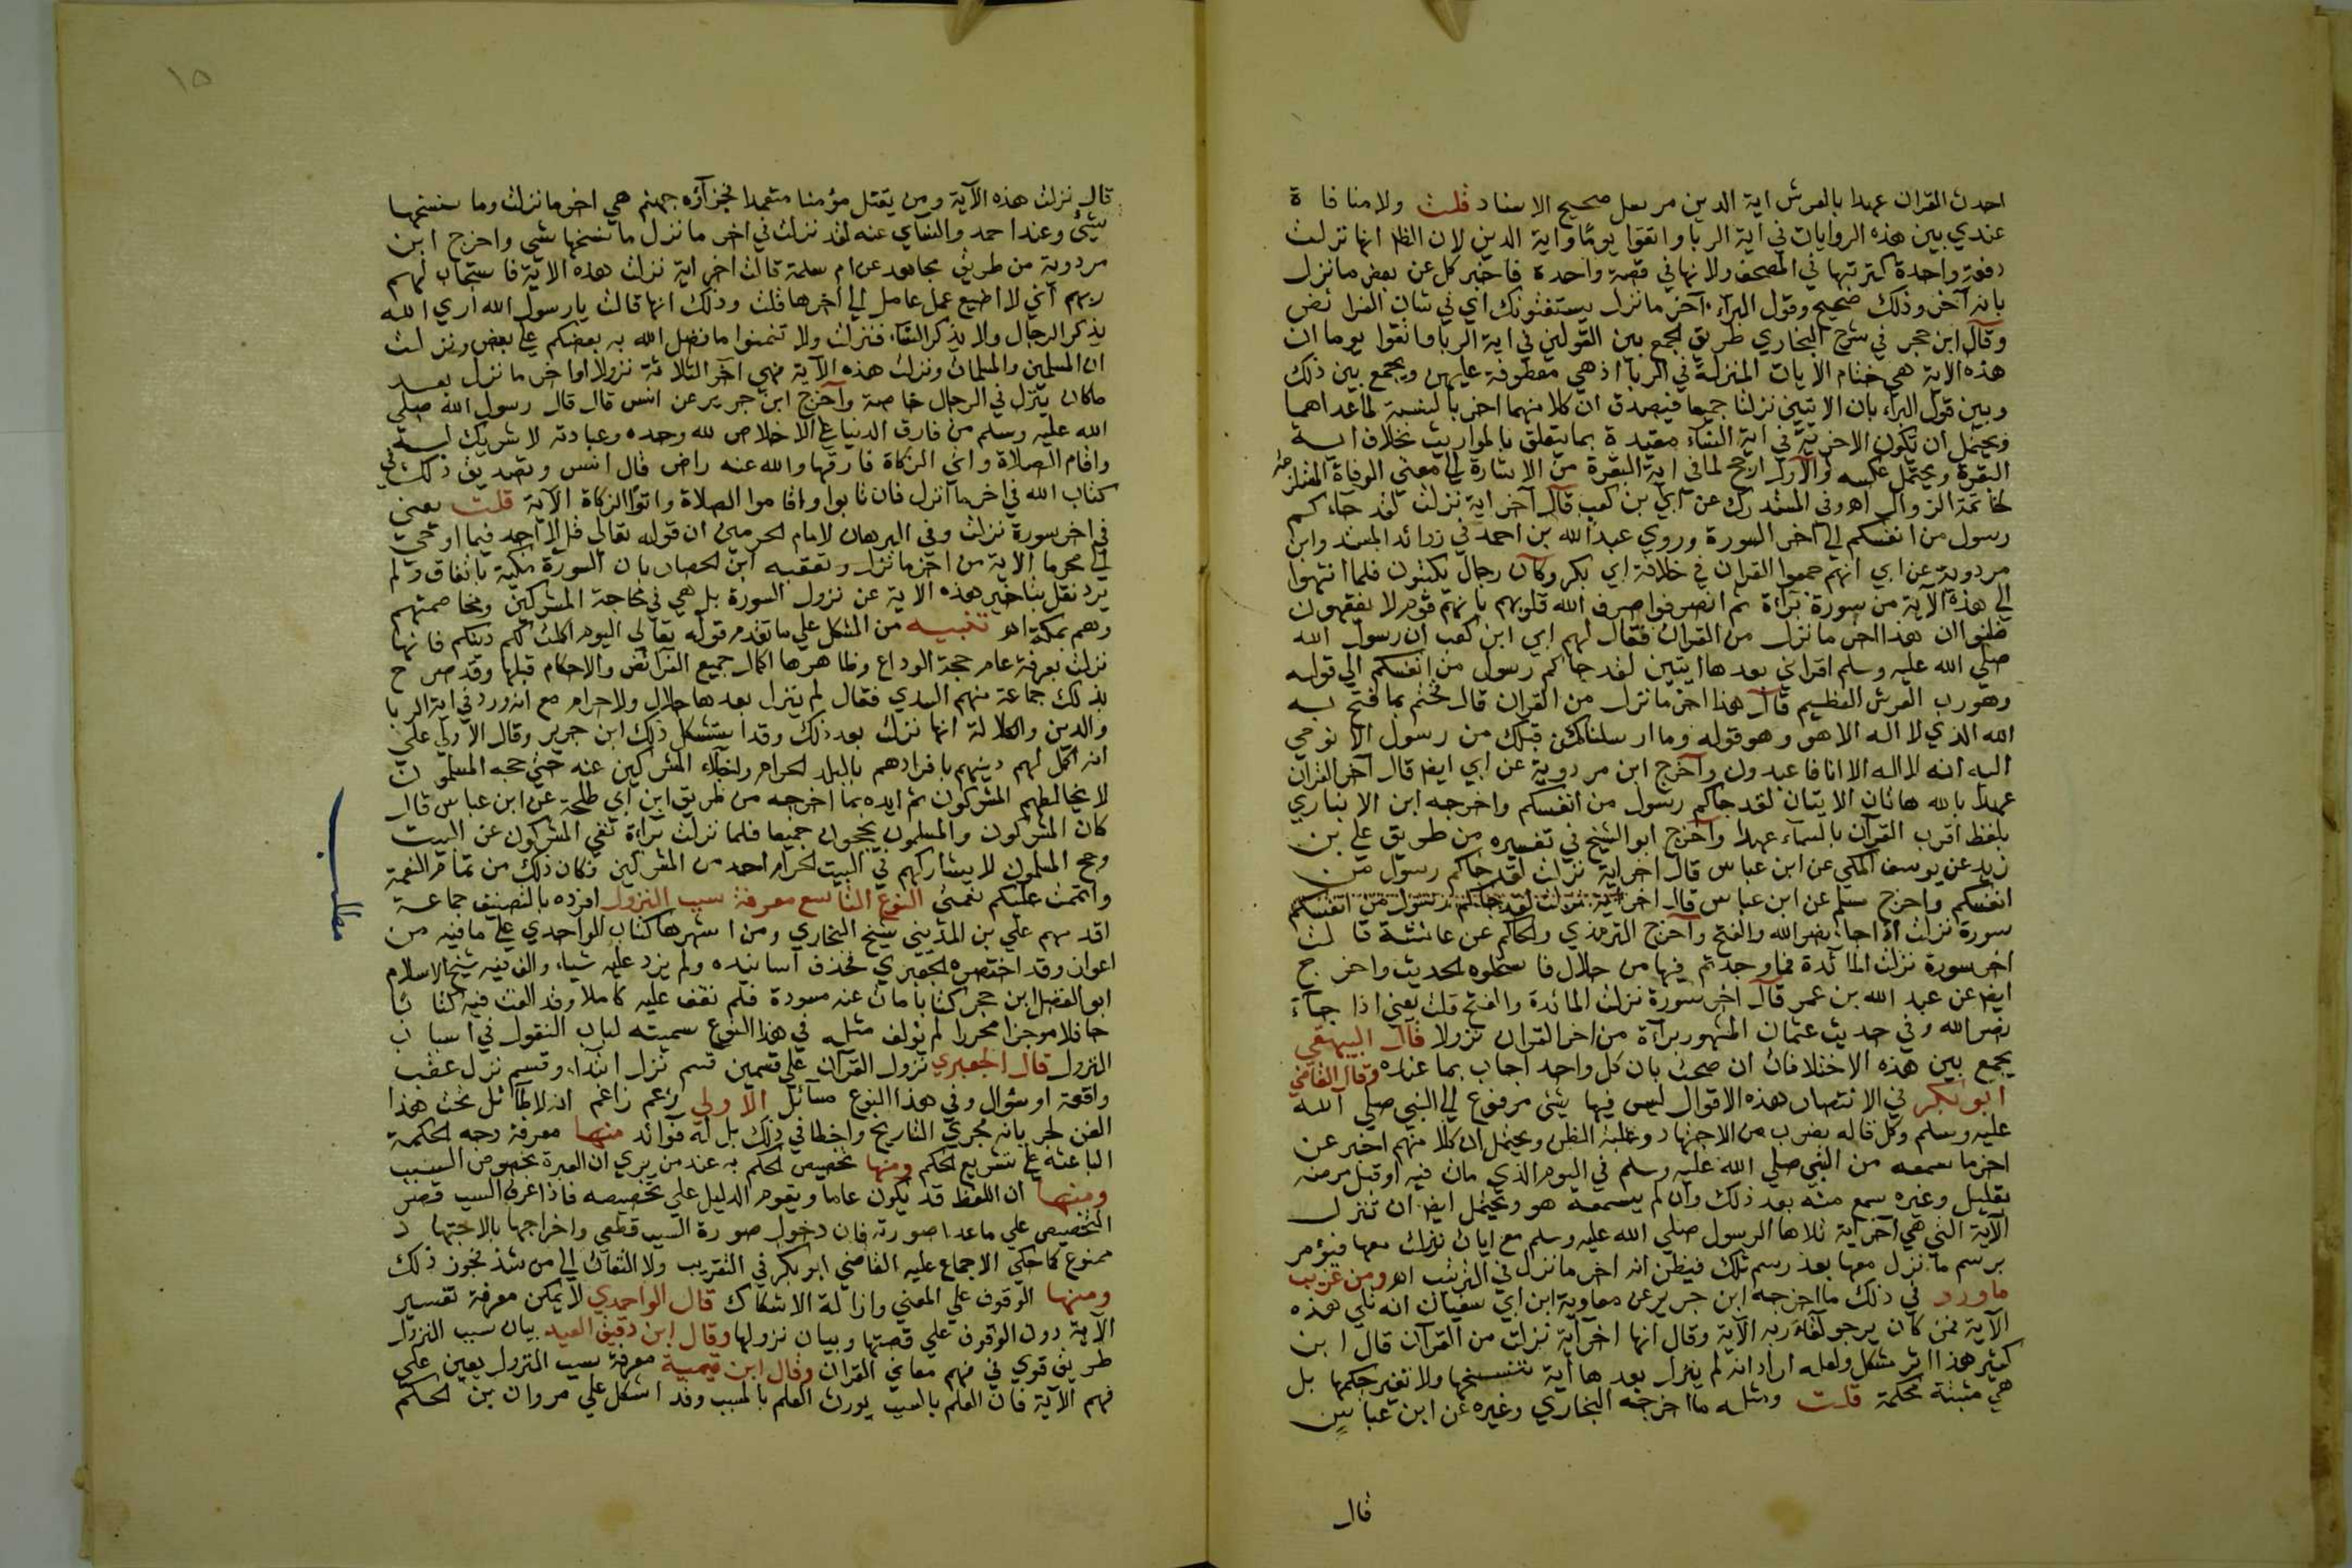 احدث القران عهدا بالعرش اية الدين مرسل صحيح الاسناد قلت ولا منافاة
عندي بين هذه الروايات في اية الربا واتقوا يوما واية الدين لان الظ انها نزلت
دفعة واحدة كترتيبها في المصحف ولانها في قصة واحدة فاخبر كل عن بعض ما نزل
بانه آخر وذلك صحيح وقول البراء آخر ما نزل يستفتونك اي في شان الفرائض
وقال ابن حجر في شرح البخاري طريق الجمع بين القولين في اية الربا واتقوا يوما ان
هذه الاية هي ختام الايات المنزلة في الربا اذ هي معطوفة عليهن ويجمع بين ذلك
وبين قول البراء بان الايتين نزلتا جميعا فيصدق ان كلا منهما اخر بالنسبة لما عداهما
ويحتمل ان تكون الاخرية في اية النساء مقيدة بما يتعلق بالمواريث بخلاف اية
البقرة ويحتمل عكسه والاول ارجح لما في اية البقرة من الاشارة الى معنى الوفاة المستلزمة
لخاتمة النزول اهـ وفي المستدرك عن ابي بن كعب قال آخر اية نزلت لقد جاءكم
رسول من انفسكم الى آخر السورة وروي عبد الله بن احمد في زوائد المسند وابن
مردوية عن ابي انهم جمعوا القران في خلافة ابي بكر وكان رجال يكتبون فلما انتهوا
الى هذه الآية من سورة براءة ثم انصرفوا صرف الله قلوبهم بانهم قوم لا يفقهون
ظنوا ان هذا اخر ما نزل من القران فقال لهم ابي ابن كعب ان رسول الله
صلى الله عليه وسلم اقراني بعدها ايتين لقد جاكم رسول من انفسكم الى قوله
وهو رب العرش العظيم قال هذا اخر ما نزل من القران قال فختم بما فتح به
الله الذي لا اله الا هو وهو قوله وما ارسلنا من قبلك من رسول الا نوحي
اليه انه لا اله الا انا فاعبدون وآخرج ابن مردوية عن ابي ايض قال آخر القران
عهدا بالله هاتان الايتان لقد جاكم رسول من انفسكم واخرجه ابن الانباري
بلفظ اقرب القرآن بالسماء عهدا وآخرج ابو الشيخ في تفسيره من طريق علي بن
زيد عن يوسف المكي عن ابن عباس قال اخر اية نزلت لقد جاكم رسول من
انفسكم واخرج مسلم عن ابن عباس قال اخر اية نزلت لقد جاكم رسول من انفسكم
سورة نزلت اذا جاء نصر الله والفتح وآخرج الترمذي والحاكم عن عائشة قالت
اخر سورة نزلت المائدة فما وجدتم فيها من حلال فاستحلوه الحديث واخرج
ايض عن عبد الله بن عمر قال اخر سورة نزلت المائدة والفتح قلت يعني اذا جآء
نصر الله وفي حديث عثمان المشهور براءة من اخر القران نزولا قال البيهقي
يجمع بين هذه الاختلافات ان صحت بان كل واحد اجاب بما عنده وقال القاضي
ابو بكر في الانتصار هذه الاقوال ليس فيها شئ مرفوع الى النبي صلى الله
عليه وسلم وكل قاله بضرب من الاجتهاد وغلبة الظن ويحتمل ان كلا منهم اخبر عن
اخر ما سمعه من النبي صلى الله عليه وسلم في اليوم الذي مات فيه او قبل مرضه
بقليل وغيره سمع منه بعد ذلك وان لم يسمعه هو ويحتمل ايض ان تنزل
الآية التي هي آخر اية تلاها الرسول صلى الله عليه وسلم مع ايات نزلت معها فيؤمر
برسم ما نزل معها بعد رسم تلك فيظن انه اخر ما نزل في الترتيب اهـ ومن غريب
ما ورد في ذلك ما اخرجه ابن جرير عن معاوية ابن ابي سفيان انه تلى هذه
الآية فمن كان يرجو لقاء ربه الآية وقال انها اخر آية نزلت من القرآن قال ابن
كثير هذا اثر مشكل ولعله اراد انه لم ينزل بعدها آية تنسخها ولا تغير حكمها بل
هي مثبتة محكمة قلت ومثله ما اخرجه البخاري وغيره عن ابن عباس
قال
١٥
قال نزلت هذه الآية ومن يقتل مؤمنا متعمدا فجزآؤه جهنم هي اخر ما نزلت وما نسخها
شيئ وعند احمد والنساي عنه لقد نزلت في اخر ما نزل ما نسخها شى واخرج ابن
مردوية من طريق مجاهد عن ام سلمة قالت اخر اية نزلت هذه الاية فاستجاب لهم
ربهم اني لا اضيع عمل عامل الى آخرها قلت وذلك انها قالت يا رسول الله ارى الله
يذكر الرجال ولا يذكر النساء فنزلت ولا تتمنوا ما فضل الله به بعضكم على بعض ونزلت
ان المسلمين والمسلمات ونزلت هذه الآية فهي آخر الثلاثة نزولا او اخر ما نزل بعد
ما كان ينزل في الرجال خاصة وآخرج ابن جرير عن انس قال قال رسول الله صلى
الله عليه وسلم من فارق الدنيا على الاخلاص لله وحده وعبادته لا شريك له
واقام الصلاة واتي الزكاة فارقها والله عنه راض قال انس وتصديق ذلك في
كتاب الله في اخر ما انزل فان تابوا واقاموا الصلاة واتوا الزكاة الآية قلت يعني
في اخر سورة نزلت وفي البرهان لامام الحرمين ان قوله تعالى قل لا اجد فيما اوحي
الى محرما الاية من اخر ما نزل وتعقبه ابن الحصار بان السورة مكية باتفاق ولم
يرد نقل بتاخير هذه الاية عن نزول السورة بل هي في محاجة المشركين ومخاصمتهم
وهم بمكة اهـ تنبيه من المشكل على ما تقدم قوله تعالى اليوم اكملت لكم دينكم فانها
نزلت بعرفة عام حجة الوداع وظاهرها اكمال جميع الفرائض والاحكام قبلها وقد صرح
بذلك جماعة منهم السدي فقال لم ينزل بعدها حلال ولا حرام مع انه ورد في اية الربا
والدين والكلالة انها نزلت بعد ذلك وقد استشكل ذلك ابن جرير وقال الاولى على
انه اكمل لهم دينهم بافرادهم بالبلد الحرام واجلاء المشركين عنه حتى حجه المسلمون
لا يخالطهم المشركون ثم ايده بما اخرجه من طريق ابن ابي طلحة عن ابن عباس قال
كان المشركون والمسلمون يحجون جميعا فلما نزلت براءة نفي المشركون عن البيت
وحج المسلمون لا يشاركهم في البيت الحرام احد من المشركين فكان ذلك من تمام النعمة
واتممت عليكم نعمتي النوع التاسع معرفة سبب النزول افرده بالتصنيف جماعة
اقدمهم علي بن المديني شيخ البخاري ومن اشهرها كتاب الواحدي على ما فيه من
اعواز وقد اختصره الجعبري فحذف اسانيده ولم يزد عليه شيا، والف فيه شيخ الاسلام
ابو الفضل ابن حجر كتابا مات عنه مسودة فلم نقف عليه كاملا وقد الفت فيه كتابا
حافلا موجزا محررا لم يؤلف مثله في هذا النوع سميته لباب النقول في اسباب
النزول قال الجعبري نزول القرآن على قسمين قسم نزل ابتدا، وقسم نزل عقب
واقعة او سؤال وفي هذا النوع مسآئل الاولى زعم زاعم انه لا طائل تحت هذا
الفن لجريانه مجرى التاريخ واخطا في ذلك بل له فوائد منها معرفة وجه الحكمة
الباعثة على تشريع الحكم ومنها تخصيص الحكم به عند من يرى ان العبرة بخصوص السبب
ومنها ان اللفظ قد يكون عاما ويقوم الدليل على تخصيصه فاذا عرف السبب قصر
التخصيص على ماعدا صورته فان دخول صورة السبب قطعي واخراجها بالاجتهاد
ممنوع كما حكى الاجماع عليه القاضي ابو بكر في التقريب ولا التفات الى من شذ فجوز ذلك
ومنها الوقوف على المعنى وازالة الاشكال قال الواحدي لا يمكن معرفة تفسير
الآية دون الوقوف على قصتها وبيان نزولها وقال ابن دقيق العيد بيان سبب النزول
طريق قوي في فهم معاني القران وقال ابن تيمية معرفة سبب النزول يعين على
فهم الآية فان العلم بالسبب يورث العلم بالمسبب وقد اشكل على مروان بن الحكم
مطلب